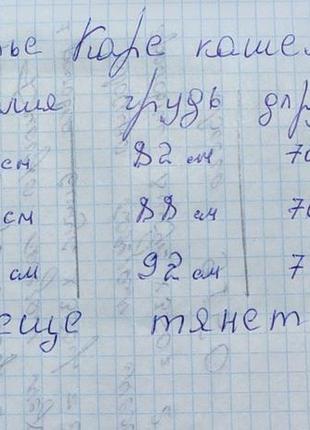 ье Каре каше
лия грудь дл р
см 82 см 7
см 88 см 7
см 92 см 7
еще тянет